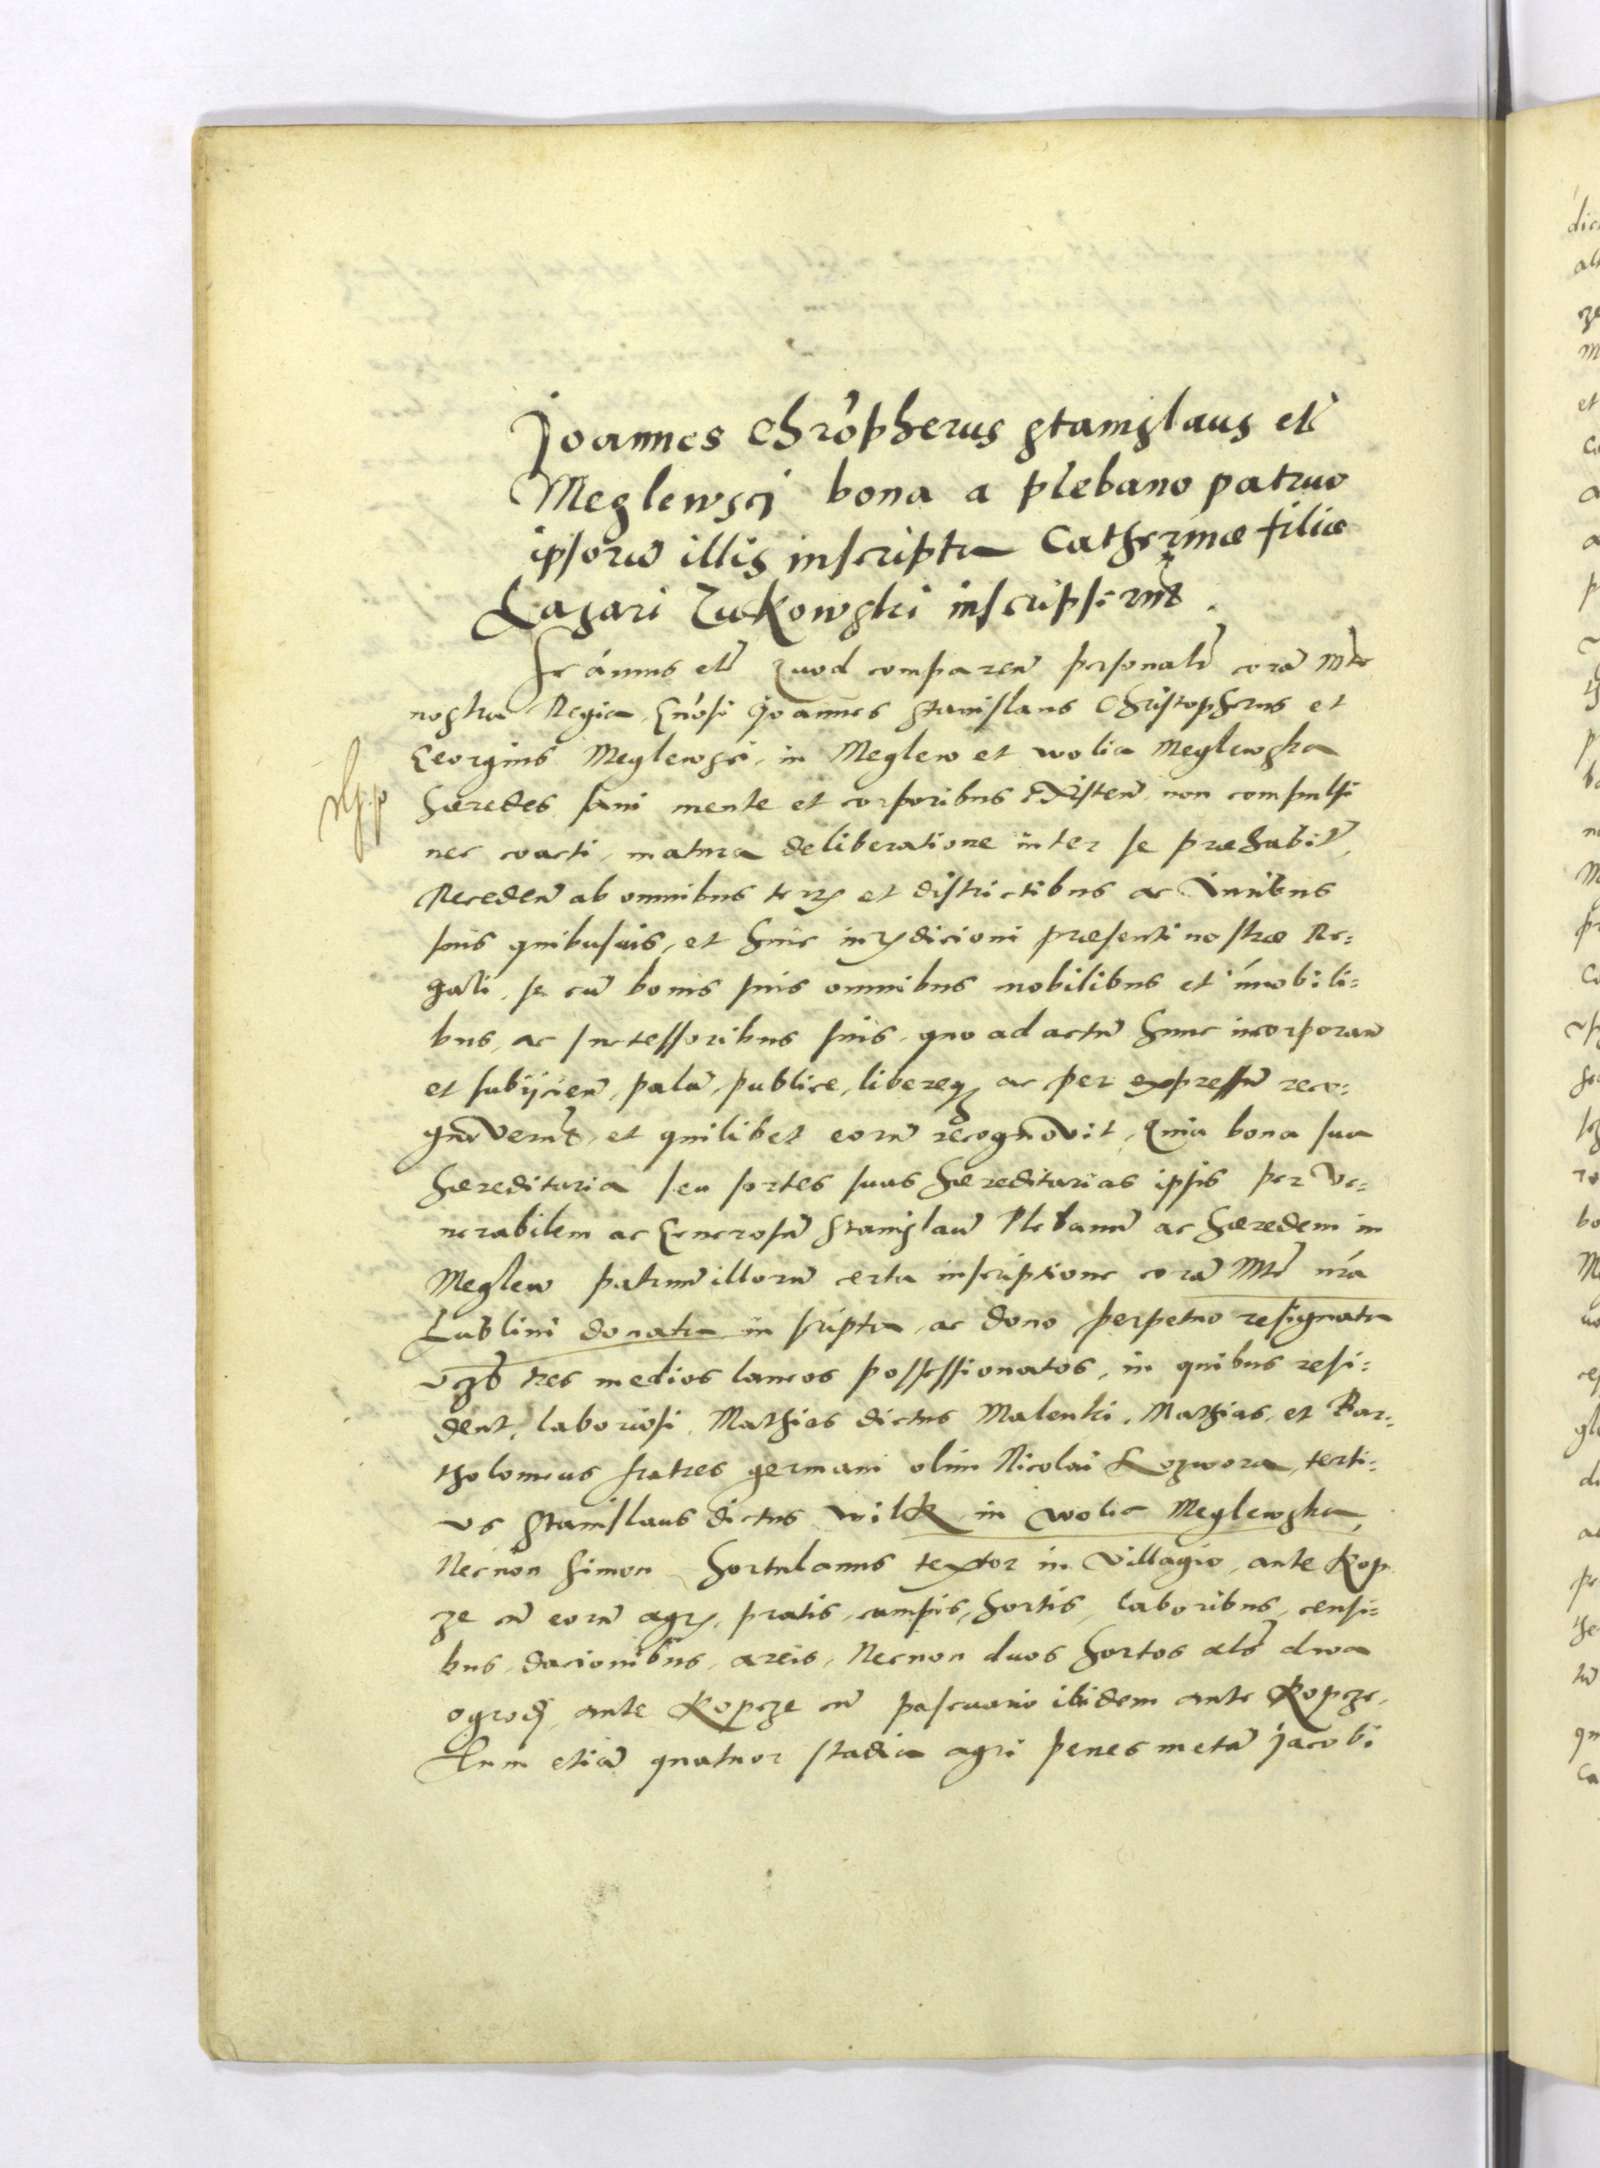 Joannes Chrõpherus Stanislaus etc̃
Meglewsci bona a plebano patruo
ipsorũ illis inscripta Catherinæ filiæ
Lazari Zukowski inscripserũt.
Sc̃amus etc̃ Quod comparen̄ personalr̃ corã Mte
nostra Regia Gn̄osi Joannes Stanislaus Christopherus et
Georgius Meglewsci, in Meglew et wolia Meglewska
hæredes sani mente et corporibus existen̄ non compulsi
nec coacti, matura deliberatione inter se præhabit̃,
Receden̄ ab omnibus terrĳs et districtibus ac Juribus
suis quibusuis, et huic iurÿdicioni præsenti nostræ Re:
gali, se cũ bonis suis omnibus mobilibus et im̃obili:
bus, ac successoribus suis, quo ad actũ hunc incorporan̄
et subÿcien̄, palã, publice, libereq ac per expressũ reco:
gnoverũt, et quilibet eorũ recognovit, Quia bona sua
hæreditaria seu sortes suas hæreditarias ipsis per Ve:
nerabilem ac Generosũ Stanislaũ Plebanũ ac hæredem in
Meglew patruũ illorũ certa inscriptione corã Mte nr̃a
Lublini donata inscripta, ac dono perpetuo resignata
vĩdlt tres medios laneos possessionatos, in quibus resi:
dent, laboriosi, Mathias dictus Malenki, Mathias, et Bar:
tholomeus fratres germani olim Nicolai Kozwora, terti:
us Stanislaus dictus wilk in wolia Meglewska,
Necnon Simon hortulanus textor in Villagio, ante Kop
ze cũ eorũ agrĳs, pratis, campis, hortis, laboribus, censi:
bus, dacionibus, areis, Necnon duos hortos als̃ dwa
ogrodÿ, ante Kopcze cũ pascuario ibidem ante Kopcze,
Tum etiã quatuor stadia agri penes metã Jacobi